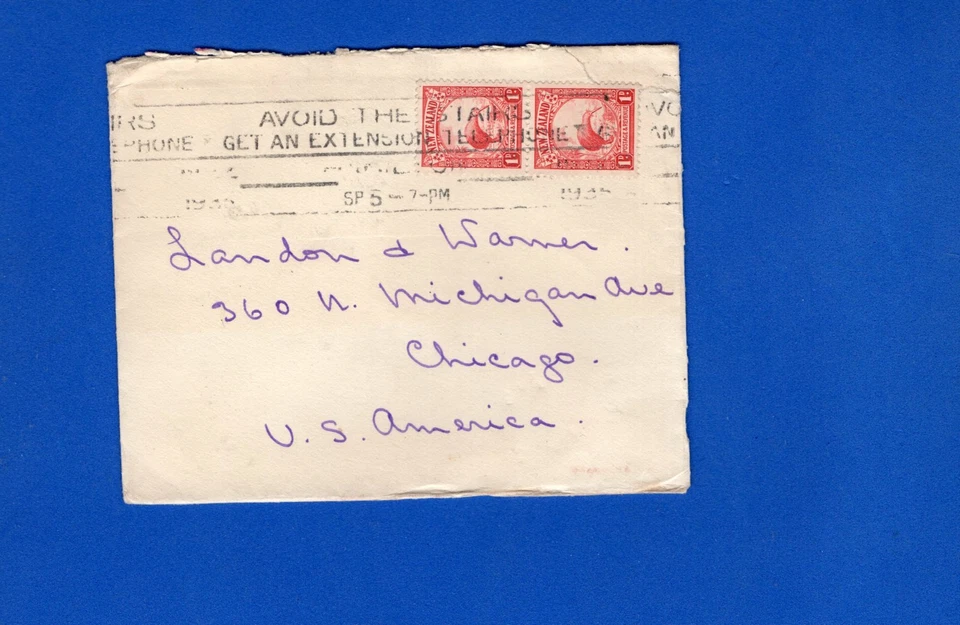 AVOID THE STAIRS
GET AN EXTENSION TELEPHONE
SP 5 - 7-PM
1935
NEW ZEALAND
1D
1D
NEW ZEALAND
1D
1D
Landon & Warner.
360 N. Michigan Ave
Chicago.
U. S. America.